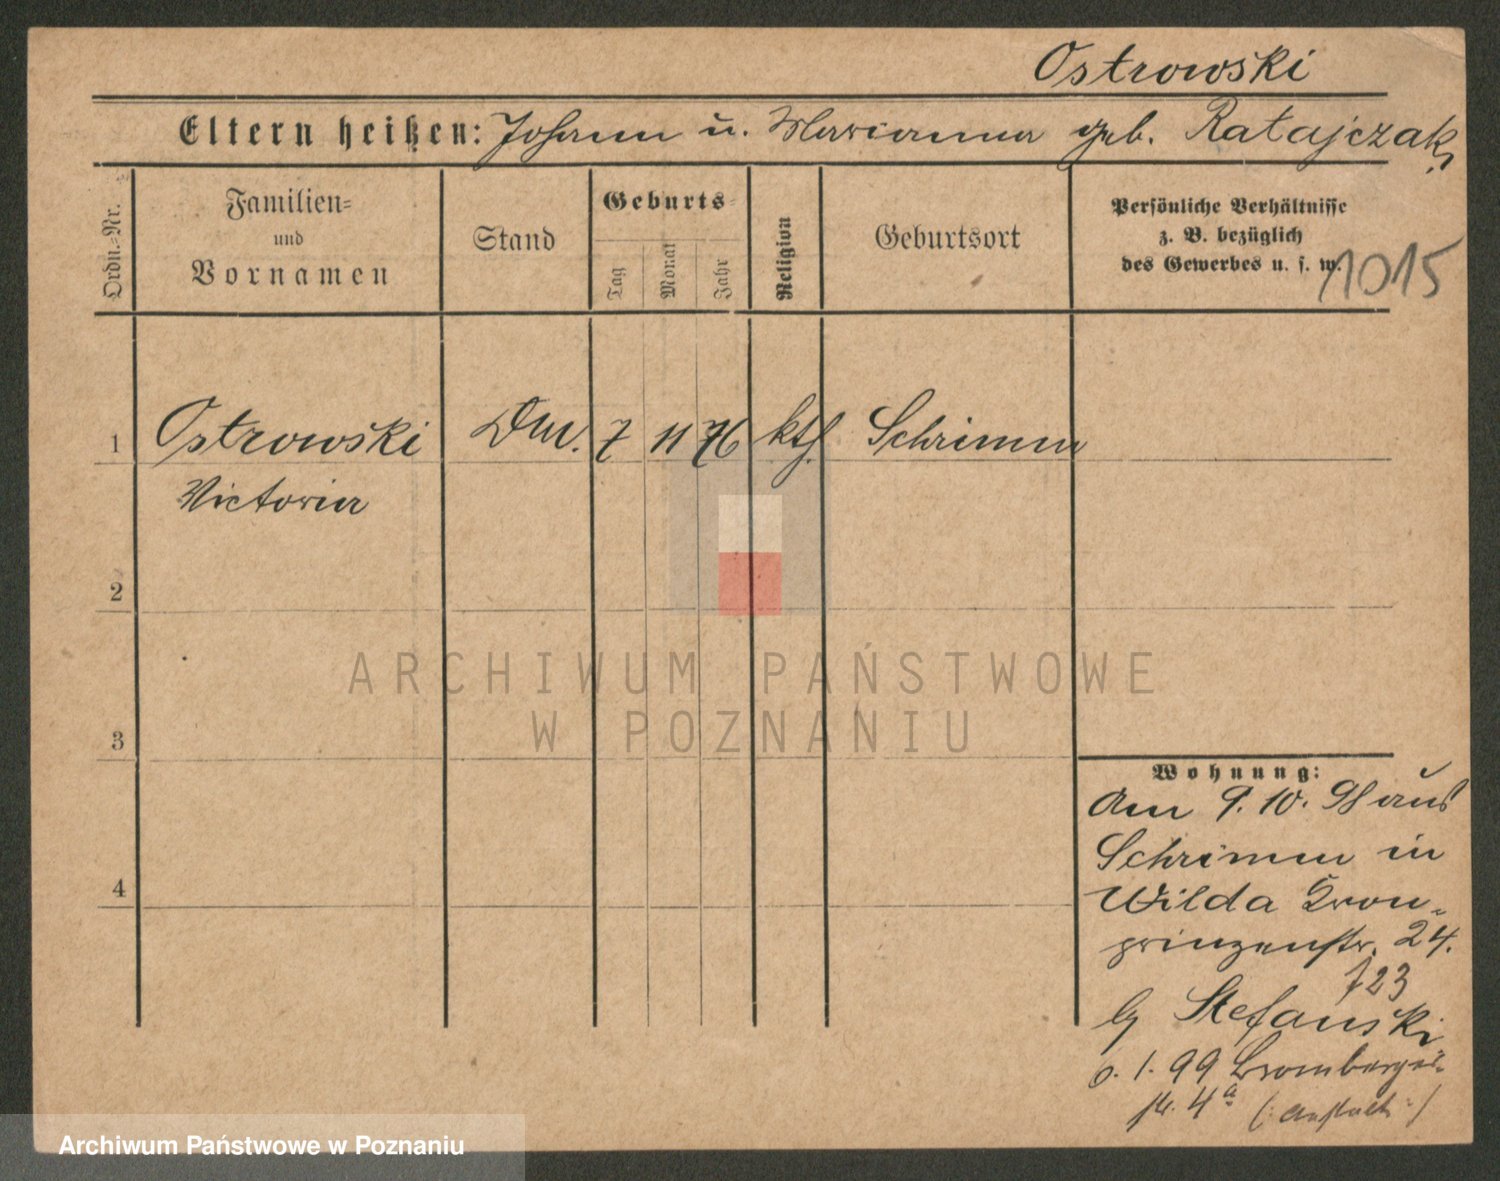 Ostrowski
Eltern heißen: Johann u. Marianna geb. Ratajczak
Ordn.-Nr.
Familien-
und
Vornamen
Stand
Geburts-
Tag
Monat
Jahr
Religion
Geburtsort
Persönliche Verhältnisse
z. B. bezüglich
des Gewerbes u. s. w.
1015
1
Ostrowski
7
11
76
kth.
Schrimm
Victoria
2
3
4
Wohnung:
Am 9. 10. 98 aus
Schrimm in
Wilda Kron-
prinzenstr. 24.
723
Stefanski
1. 99 Bromberger-
str. 4a
ARCHIWUM PAŃSTWOWE
W POZNANIU
Archiwum Państwowe w Poznaniu